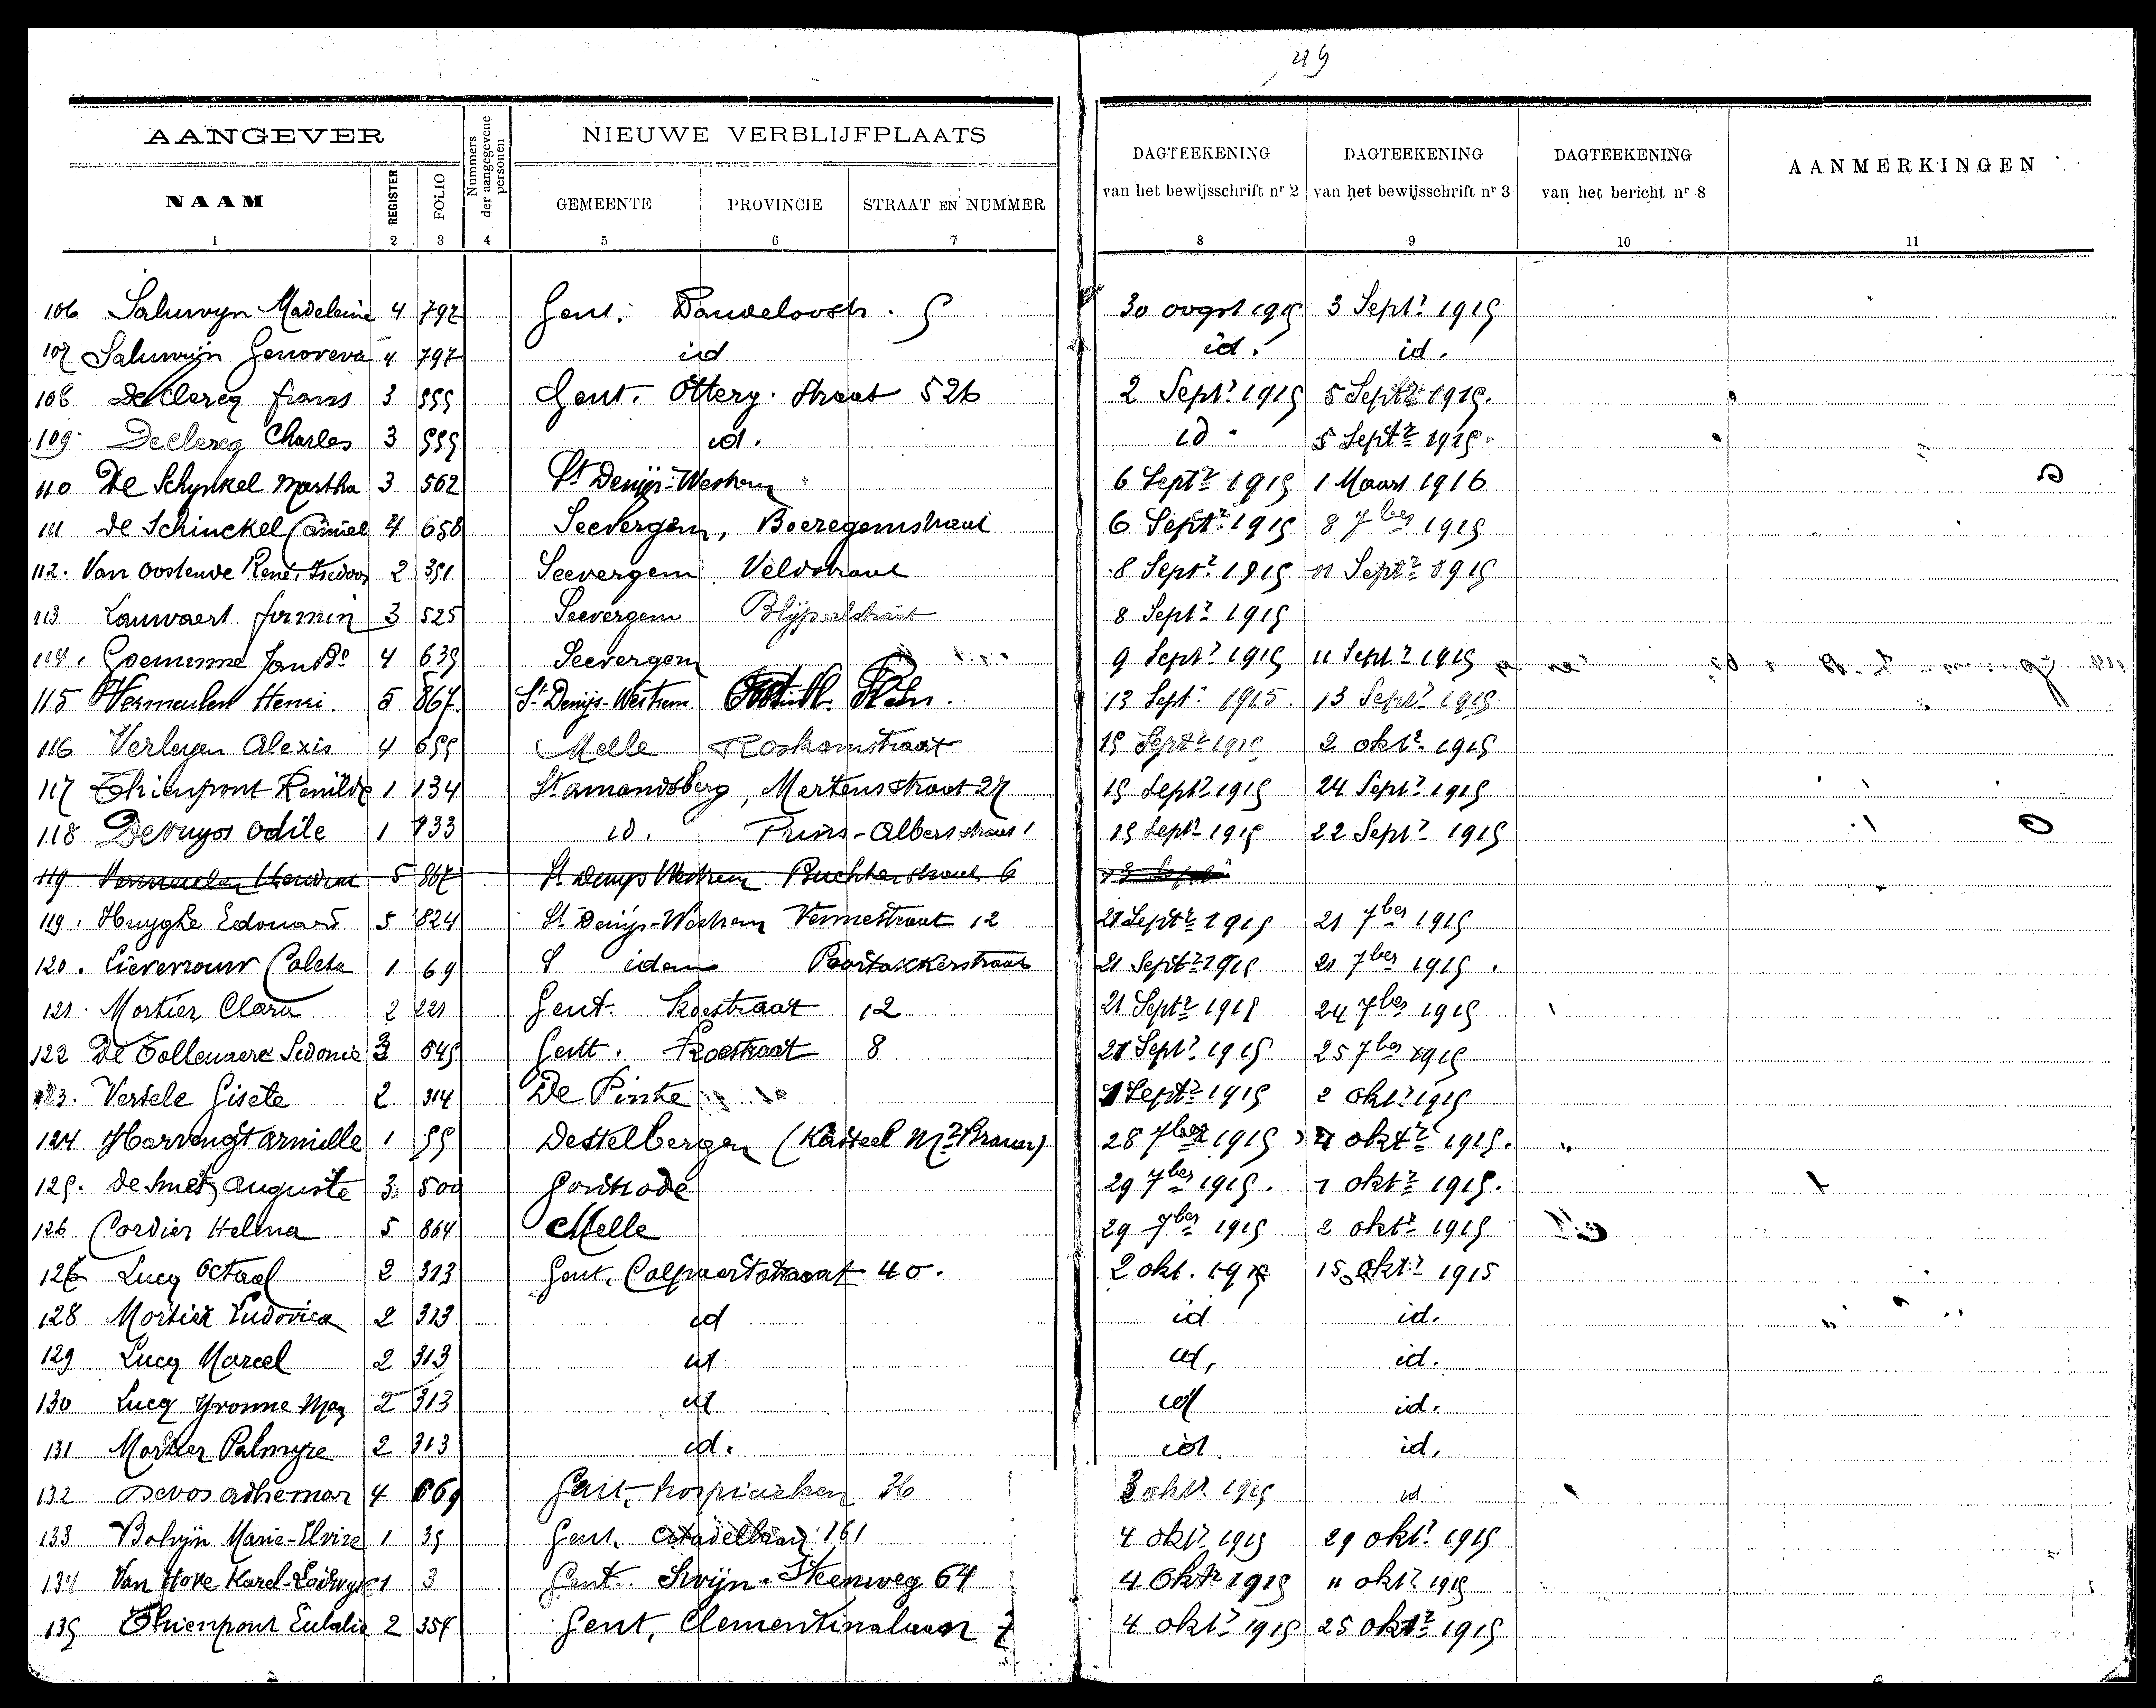 49
AANGEVER
NIEUWE VERBLIJFPLAATS
NAAM REGISTER FOLIO Nummers der aangegevene personen GEMEENTE PROVINCIE STRAAT EN NUMMER DAGTEEKENING van het bewijsschrift nr 2 DAGTEEKENING van het bewijsschrift nr 3 DAGTEEKENING van het bericht nr 8 AANMERKINGEN
1 2 3 4 5 6 7 8 9 10 11
106 Saluwyn Madeleine 4 797 Gent, 5 30 oogst 1915 3 Septr 1915
107 Saluwijn Genoveva 4 797 id id. id.
108 De Clercq frans 3 555 Gent. Otterg. straat 526 2 Septr 1915 5 Septr 1915.
109 Declercq Charles 3 555 id. id. 5 Septr 1915.
110 De Schynkel Martha 3 562 St Denijs-Westrem 6 Septr 1915 1 Maart 1916
111 De Schinckel Camiel 4 658 Seevergem, Boeregemstraat 6 Septr 1915 8 7ber 1915
112. Van Oostende René, Isidoor 2 391 Seevergem Veldstraat 8 Septr 1915 11 Septr 1915
113 Lauwaert firmin 3 525 Seevergem 8 Septr 1915
114. Goeminne Jan Bo 4 639 Seevergem 9 Septr 1915 11 Septr 1915
115 Vermeulen Henri. 5 867. St Denijs-Westrem 13 Septr 1915. 13 Septr 1915.
116 Verleyen Alexis 4 655 Melle Roskamstraat 15 Septr 1915 2 oktr. 1915
117 Thienpont Renilde 1 134 St amandsberg, Mertensstraat 27 15 Septr 1915 24 Septr 1915
118 Devuyst Odile 1 133 id. Prins-Albertstraat 1 15 Septr 1915 22 Septr 1915
119 Vermeulen 5 867 St Denys Westrem 6
119. Huyghe Edouard 5 824 St Denijs-Westrem Vennestraat 12 21 Septr 1915 21 7ber 1915
120. Lievrouw Coleta 1 69 S idem Poortakkerstraat 21 Septr 1915 21 7ber 1915.
121. Mortier Clara 2 221 Gent. Koestraat 12 21 Septr 1915 24 7ber 1915
122 De Tollenaere Sidonie 3 545 Gent. Koestraat 8 21 Septr 1915 25 7ber 1915
123. Versele Gisele 2 314 De Pinte Septr 1915 2 oktr 1915
124 armille 1 55 Destelbergen (Kasteel Mr 28 7ber 1915 4 oktr 1915.
125. De Smet, auguste 3 500 Gontrode 29 7ber 1915. 1 oktr 1915.
126 Cordier Helena 5 864 Melle 29 7ber 1915 2 oktr 1915
127 Lucq Octaaf 2 313 Gent, Colpaertstraat 40. 2 okt. 1915 15 oktr 1915
128 Mortier Ludovica 2 313 id id id.
129 Lucq Marcel 2 313 id id, id.
130 Lucq Yvonne 2 313 id id id.
131 Mortier Palmyre 2 313 id. id id.
132 Devos adhemar 4 669 Gent, 36 3 oktr. 1915 id
133 Bolijn Marie-Elvire 1 35 Gent. Citadellaan 161 4 oktr 1915 29 oktr 1915
134 Van Hove Karel-Lodewyk 1 3 Gent. Swijn. Steenweg 64 4 Oktr 1915 11 oktr 1915
135 Thienpont Eulalie 2 354 Gent, Clementinalaan 7 4 oktr 1915 25 oktr 1915